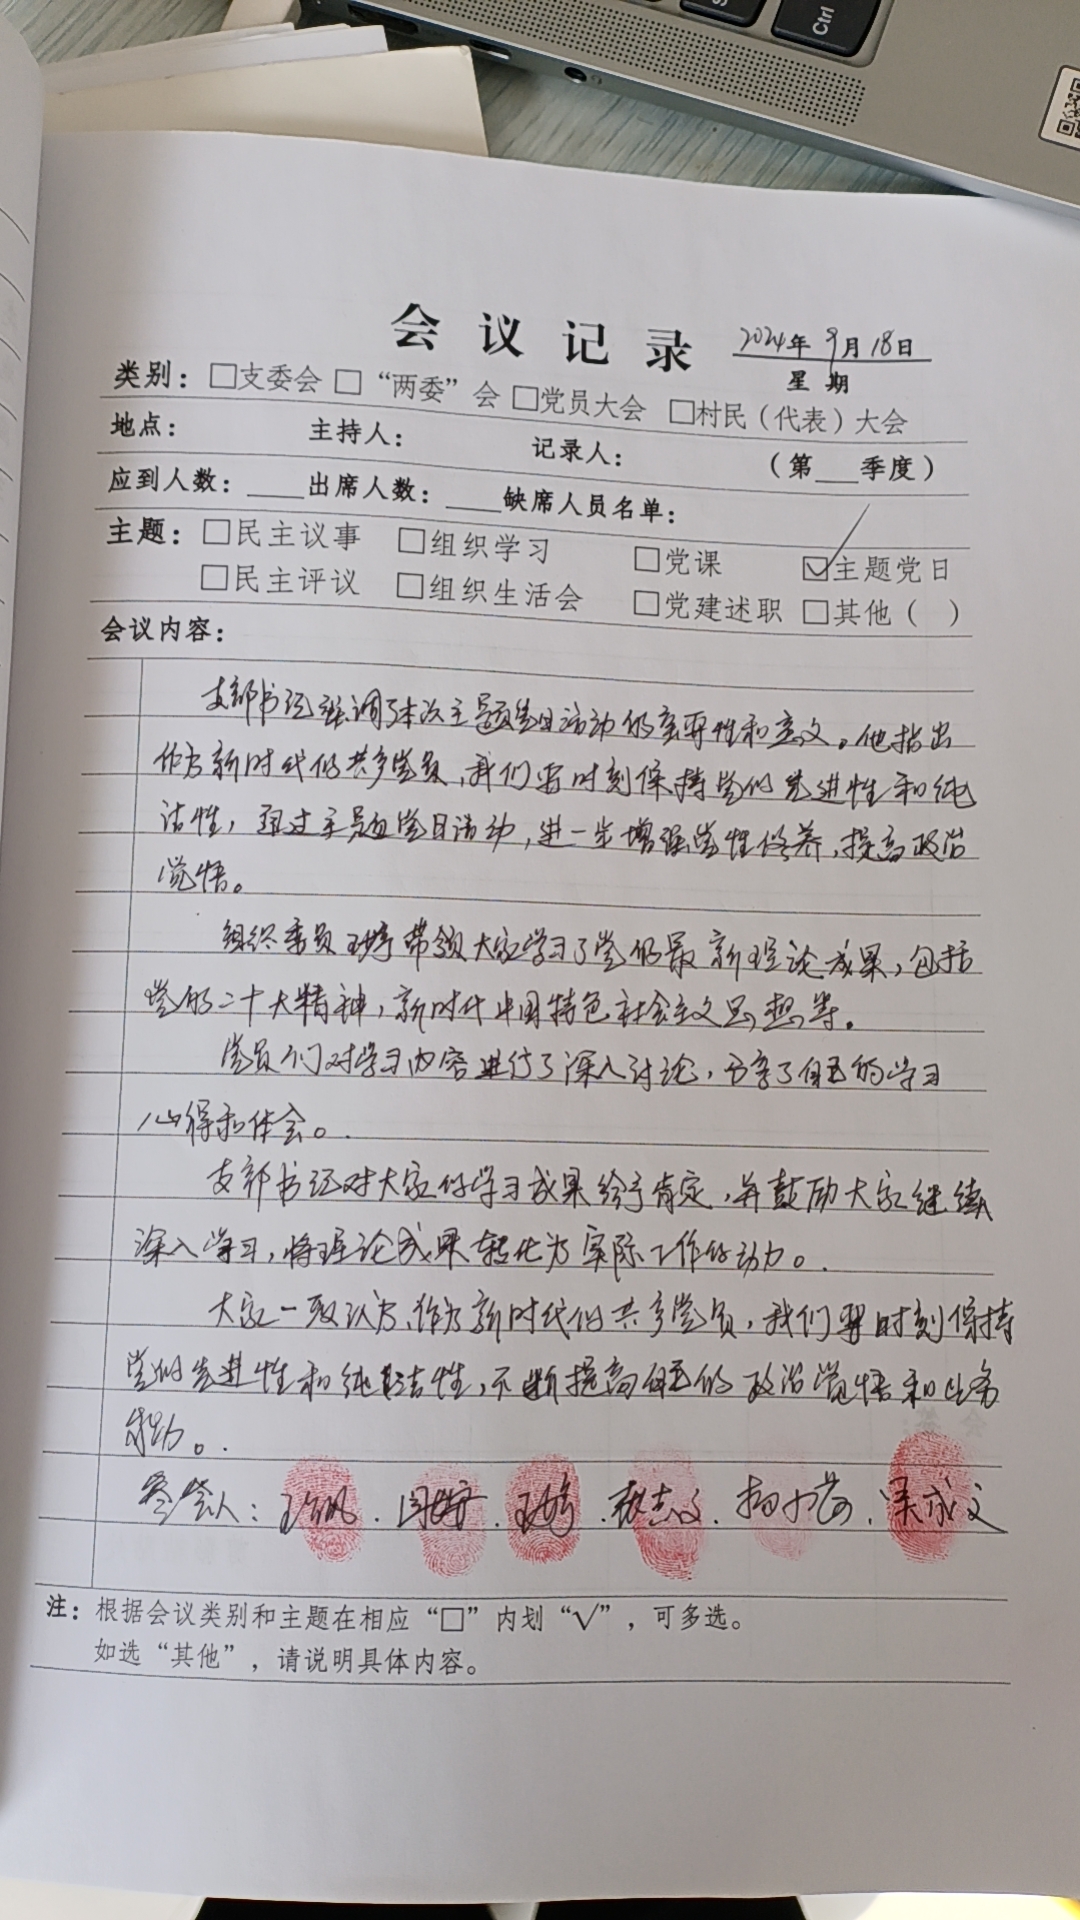 Ctrl
会议记录
2024年9月18日
星期
类别：□支委会 □“两委”会 □党员大会 □村民（代表）大会
地点： 主持人： 记录人： （第 季度）
应到人数： 出席人数： 缺席人员名单：
主题：□民主议事 □组织学习 □党课 ☑主题党日
□民主评议 □组织生活会 □党建述职 □其他（ ）
会议内容：
支部书记强调了本次主题党日活动的重要性和意义。他指出
作为新时代的共产党员，我们要时刻保持党的先进性和纯
洁性，通过主题党日活动，进一步增强党性修养，提高政治
觉悟。
组织委员 带领大家学习了党的最新理论成果，包括
党的二十大精神，新时代中国特色社会主义思想等。
党员们对学习内容进行了深入讨论，分享了自己的学习
心得和体会。
支部书记对大家的学习成果给予肯定，并鼓励大家继续
深入学习，将理论成果转化为实际工作的动力。
大家一致认为，作为新时代的共产党员，我们要时刻保持
党的先进性和纯洁性，不断提高自己的政治觉悟和业务
能力。
参会人： 吴成文
注：根据会议类别和主题在相应“□”内划“√”，可多选。
如选“其他”，请说明具体内容。